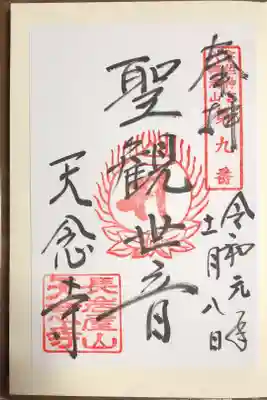 奉拝
第九番
令和元年
十一月八日
聖觀世音
天念寺
長岩屋山
天念寺